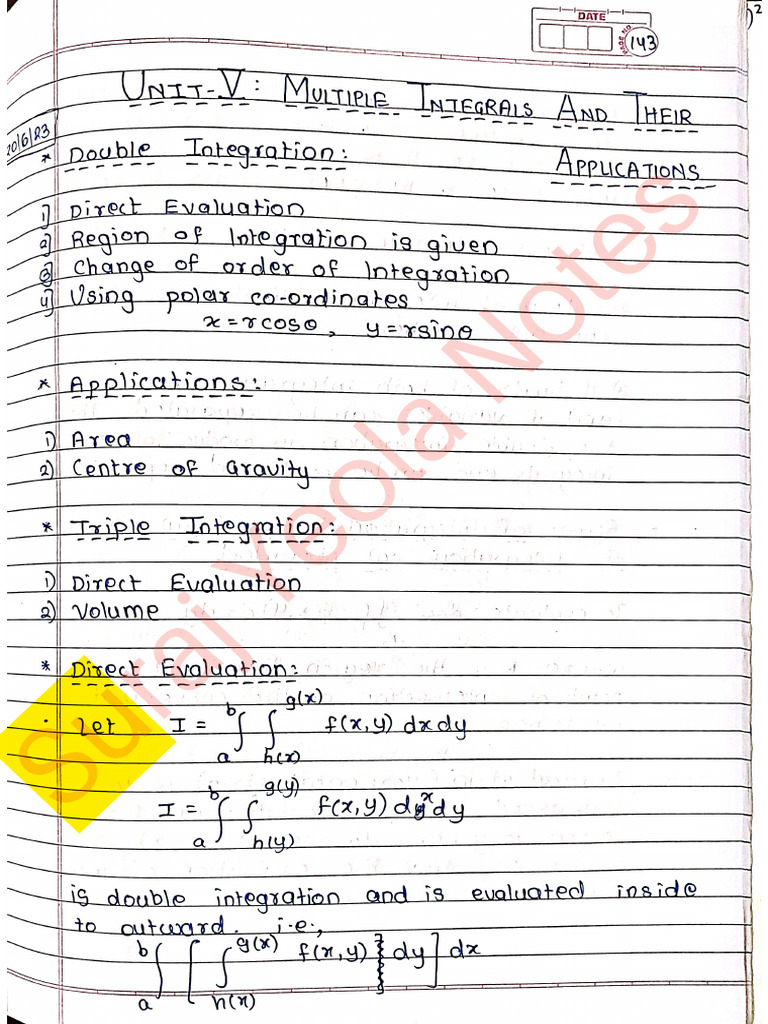 DATE
PAGE NO
143
UNIT-V: MULTIPLE INTEGRALS AND THEIR
APPLICATIONS
20/6/23
* Double Integration:
1) Direct Evaluation
2) Region of Integration is given
3) Change of order of Integration
4) Using polar co-ordinates
x = rcosθ, y = rsinθ
* Applications:
1) Area
2) Centre of Gravity
* Triple Integration:
1) Direct Evaluation
2) Volume
* Direct Evaluation:
· Let I = ∫_a^b ∫_{h(x)}^{g(x)} f(x,y) dxdy
I = ∫_a^b ∫_{h(y)}^{g(y)} f(x,y) dxdy
is double integration and is evaluated inside
to outward. i.e.,
∫_a^b [ ∫_{h(x)}^{g(x)} f(x,y) dy ] dx
Suraj Yeola Notes